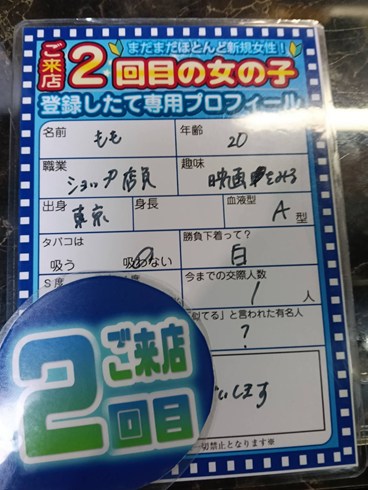 まだまだほとんど新規女性!
ご来店2回目の女の子
登録したて専用プロフィール
名前 もも 年齢 20
職業 ショップ店員 趣味 映画をみる
出身 東京 身長 血液型 A型
タバコは 勝負下着って?
吸う 吸わない 白
S度 今までの交際人数
1人
似てる」と言われた有名人
?
します
切禁止となります※
ご来店
2回目